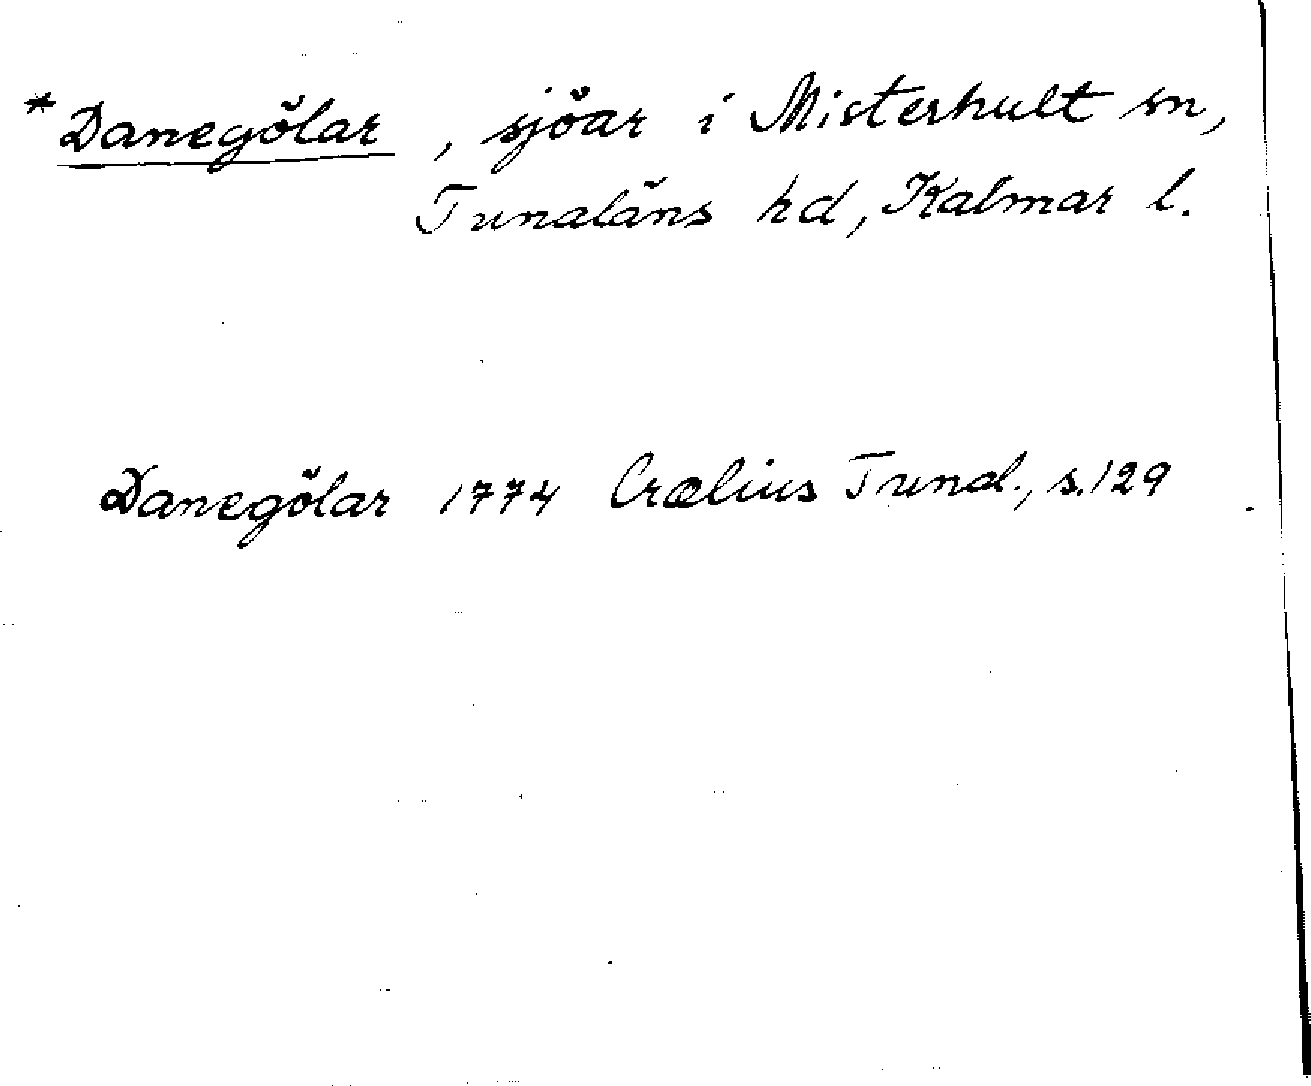 *Danegölar, sjöar i Misterhult sn,
Tunaläns hd, Kalmar l.
Danegölar 1774 Crælius Tund., s. 129